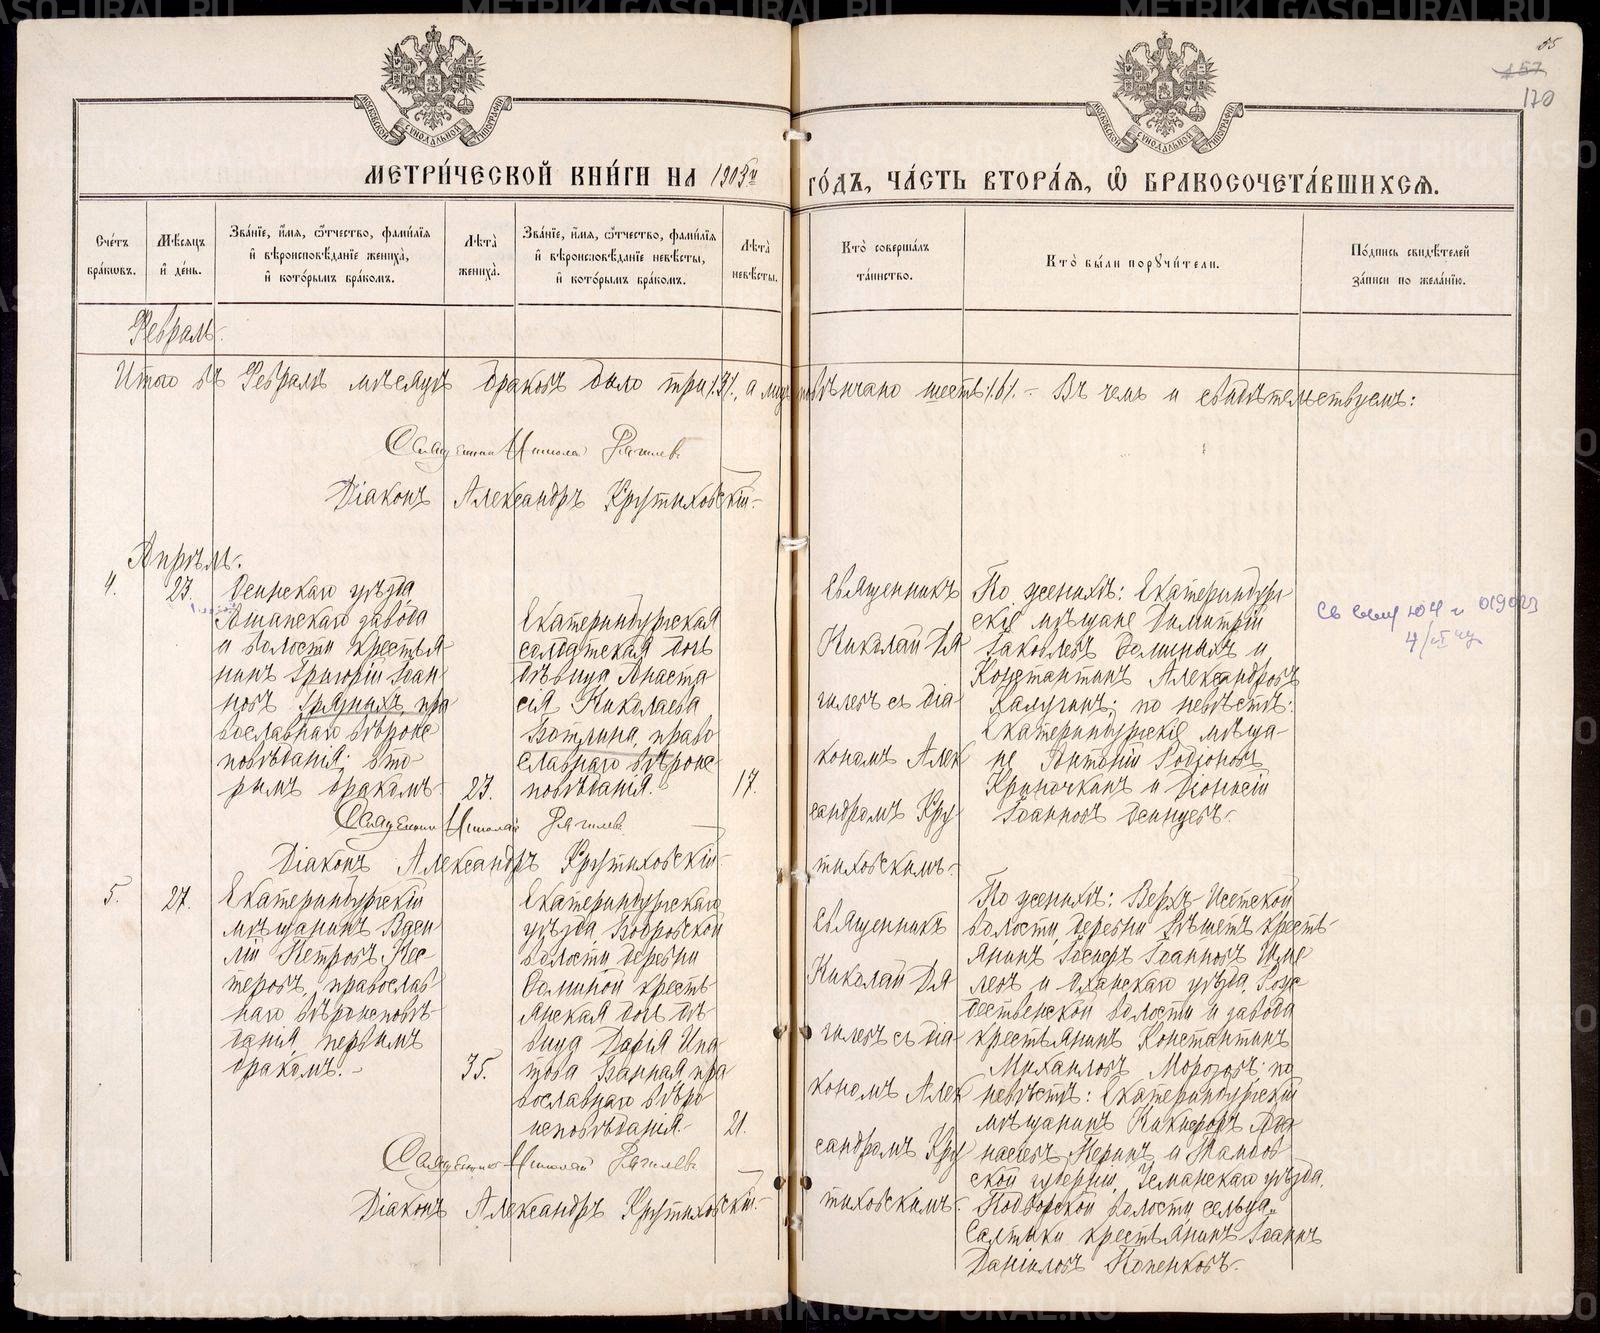 55
157
170
МОСКОВСКОЙ СѴНОДАЛЬНОЙ ТИПОГРАФІИ
МОСКОВСКОЙ СѴНОДАЛЬНОЙ ТИПОГРАФІИ
МЕТРИ́ЧЕСКОЙ КНИ́ГИ НА 1905й ГО́ДЪ, ЧА́СТЬ ВТОРА́Ѧ, Ѽ БРАКОСОЧЕТА́ВШИХСѦ.
Сче́тъ бра́ковъ.
Мѣ́сяцъ и҆ де́нь.
Зва́нїе, и҆́мѧ, ѻ҆́тчество, фами́лїѧ
и҆ вѣроисповѣ́данїе жениха̀,
и҆ кото́рымъ бра́комъ.
Лѣта̀ жениха̀.
Зва́нїе, и҆́мѧ, ѻ҆́тчество, фами́лїѧ
и҆ вѣроисповѣ́данїе невѣ́сты,
и҆ кото́рымъ бра́комъ.
Лѣта̀ невѣ́сты.
Кто̀ соверша́лъ
та́инство.
Кто̀ бы́ли порꙋчи́тели.
По́дпись свидѣ́телей
за́писи по жела́нїю.
Февраль.
Итого въ Февралѣ мѣсяцѣ браковъ было три /3/, а лицъ повѣнчано шесть /6/. – Въ чемъ и свидѣтельствуемъ:
Священникъ Николай Дягилевъ
Діаконъ Александръ Крутиховскій.
Апрѣль.
4.
23.
Осинскаго уѣзда,
Ашапскаго завода
и волости крестья
нинъ Григорій Іоан
новъ Грядныхъ, пра
вославнаго вѣроис
повѣданія; вто
рымъ бракомъ.
23.
Екатеринбургская
солдатская дочь
дѣвица Анаста
сія Николаева
Ботлина, право
славнаго вѣроис
повѣданія.
17.
Священникъ
Николай Дя
гилевъ съ діа
кономъ Алек
сандромъ Кру
тиховскимъ.
По женихѣ: Екатеринбург
скіе мѣщане Димитрій
Іаковлевъ Долиныхъ и
Константинъ Александровъ
Калугинъ; по невѣстѣ:
Екатеринбургскіе мѣща
не Антоній Родіоновъ
Криночкинъ и Діонисій
Іоанновъ Осинцевъ.
Священникъ Николай Дягилевъ
Діаконъ Александръ Крутиховскій.
5.
27.
Екатеринбургскій
мѣщанинъ Васи
лій Петровъ Нес
теровъ, православ
наго вѣроисповѣ
данія, первымъ
бракомъ.
35.
Екатеринбургскаго
уѣзда Бобровской
волости деревни
Фоминой кресть
янская дочь дѣ
вица Дарія Ипа
това Банная, пра
вославнаго вѣро
исповѣданія.
21.
Священникъ
Николай Дя
гилевъ съ діа
кономъ Алек
сандромъ Кру
тиховскимъ.
По женихѣ: Верхъ-Исетской
волости, деревни Рѣшетъ кресть
янинъ Іосифъ Іоанновъ Изме
левъ и Оханскаго уѣзда, Рож
дественской волости и завода
крестьянинъ Константинъ
Михаиловъ Морозовъ; по
невѣстѣ: Екатеринбургскій
мѣщанинъ Никифоръ Афа
насьевъ Меринъ и Тамбов
ской губерніи, Усманскаго уѣзда,
Подворской волости сельца
Салтыки крестьянинъ Іоаннъ
Даніиловъ Попенковъ.
Священникъ Николай Дягилевъ
Діаконъ Александръ Крутиховскій.
METRIKI.GASO-URAL.RU